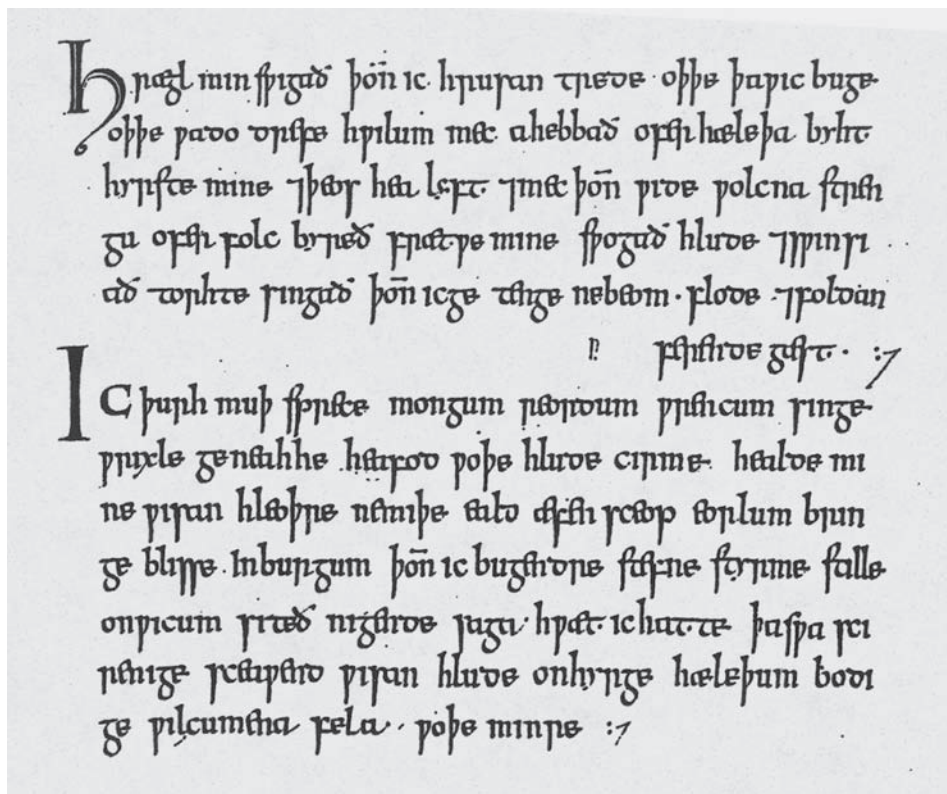 Hrægl min sƿigað þon̄ ic hrusan trede · oþþe þaƿic buge
oþþe ƿado drefe hƿilum mec ahebbað ofer hæleþa byht
hyrste mine ⁊þeos hea lyft ⁊mec þon̄ ƿide ƿolcna stren
gu ofer folc byreð frætƿe mine sƿogað hlude ⁊sƿinsi
að torhte singað þon̄ icge tenge nebeom · flode ⁊foldan
ferende gæst · :7
IC þurh muþ sprece mongum reordum ƿrencum singe
ƿrixle geneahhe heafod ƿoþe hlude cirme healde mi
ne ƿisan hleoþre nemiþe eald æfen sceop eorlum brin
ge blisse Inburgum þon̄ ic bugendre stefne styrme stille
onƿicum siteð nigende saga hƿæt ichatte þasƿa sci
renige sceaƿend ƿisan hlude onhyrge hæleþum bodi
ge ƿilcumena fela · ƿoþe minre :7